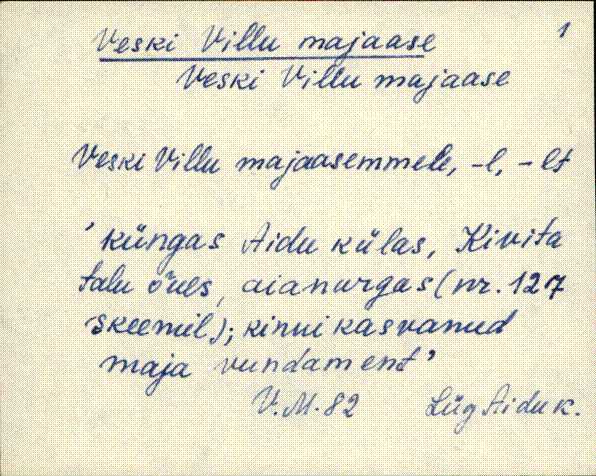 1
Veski Villu majaase
Veski Villu majaase
Veski Villu majaasemmele, -l, -lt
'küngas Aidu külas, Kivita
talu õues, aianurgas (nr. 127
skeemil); kinni kasvanud
maja vundament'
V.M. 82 Lüg Aidu k.